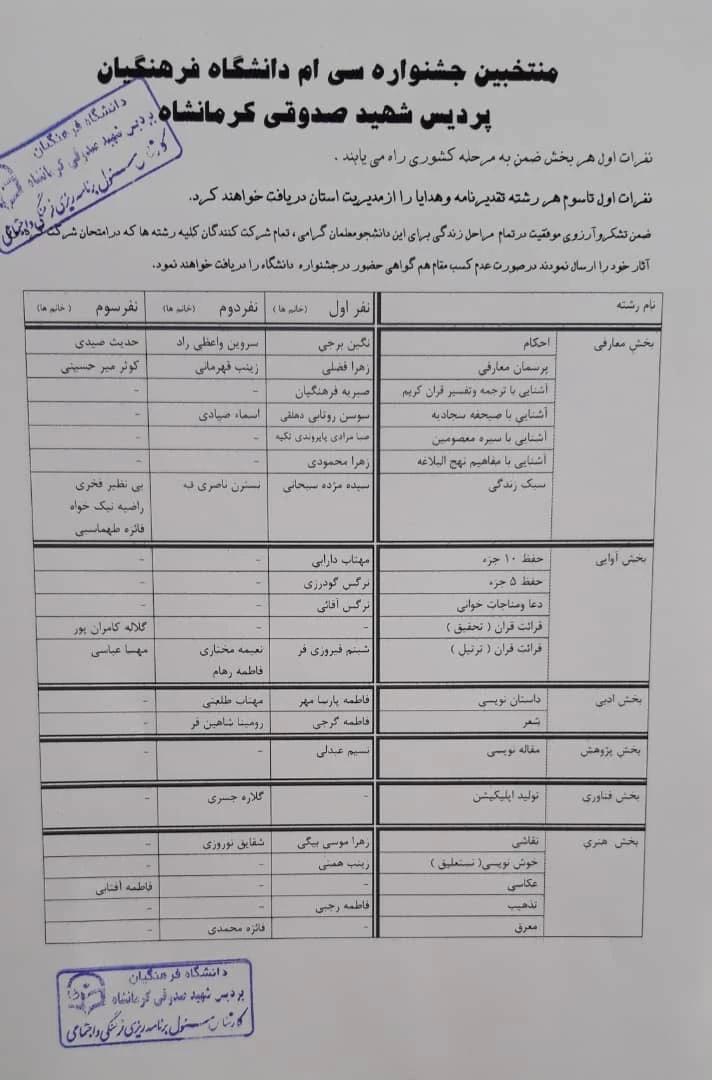 منتخبین جشنواره سی ام دانشگاه فرهنگیان
پردیس شهید صدوقی کرمانشاه
دانشگاه فرهنگیان
پردیس شهید صدوقی کرمانشاه
کارشناس مسئول برنامه ریزی فرهنگی و اجتماعی
نفرات اول هر بخش ضمن به مرحله کشوری راه می یابند .
نفرات اول تا سوم هر رشته تقدیرنامه و هدایا را از مدیریت استان دریافت خواهند کرد.
ضمن تشکر و آرزوی موفقیت در تمام مراحل زندگی برای این دانشجو معلمان گرامی ، تمام شرکت کنندگان کلیه رشته ها که در امتحان شرکت
آثار خود را ارسال نمودند در صورت عدم کسب مقام هم گواهی حضور در جشنواره دانشگاه را دریافت خواهند نمود.
نام رشته نفر اول (خانم ها ) نفر دوم (خانم ها) نفر سوم ( خانم ها)
بخش معارفی احکام نگین برجی سروین واعظی راد حدیث صیدی
پرسمان معارفی زهرا فضلی زینب قهرمانی کوثر میر حسینی
آشنایی با ترجمه وتفسیر قران کریم صبریه فرهنگیان - -
آشنایی با صیحفه سجادیه سوسن روتابی دهلقی اسماء صیادی -
آشنایی با سیره معصومین صبا مرادی پایروندی تکیه - -
آشنایی با مفاهیم نهج البلاغه زهرا محمودی - -
سبک زندگی سیده مژده سبحانی نسترن ناصری فیه بی نظیر فخری
راضیه نیک خواه
فائزه طهماسبی
بخش آوایی حفظ ۱۰ جزء مهتاب دارابی - -
حفظ ۵ جزء نرگس گودرزی - -
دعا ومناجات خوانی نرگس آقائی - -
قرائت قران ( تحقیق ) - - گلاله کامران پور
قرائت قران ( ترتیل ) شبنم فیروزی فر نعیمه مختاری مهسا عباسی
فاطمه رهام
بخش ادبی داستان نویسی فاطمه پارسا مهر مهتاب طلعتی -
شعر فاطمه گرجی رومینا شاهین فر -
بخش پژوهش مقاله نویسی نسیم عبدلی - -
بخش فناوری تولید اپلیکیشن - گلاره جسری -
بخش هنری نقاشی زهرا موسی بیگی شقایق نوروزی -
خوش نویسی( نستعلیق ) زینب همتی - -
عکاسی - - فاطمه آفتابی
تذهیب فاطمه رجبی - -
معرق - فائزه محمدی -
دانشگاه فرهنگیان
پردیس شهید صدوقی کرمانشاه
کارشناس مسئول برنامه ریزی فرهنگی و اجتماعی